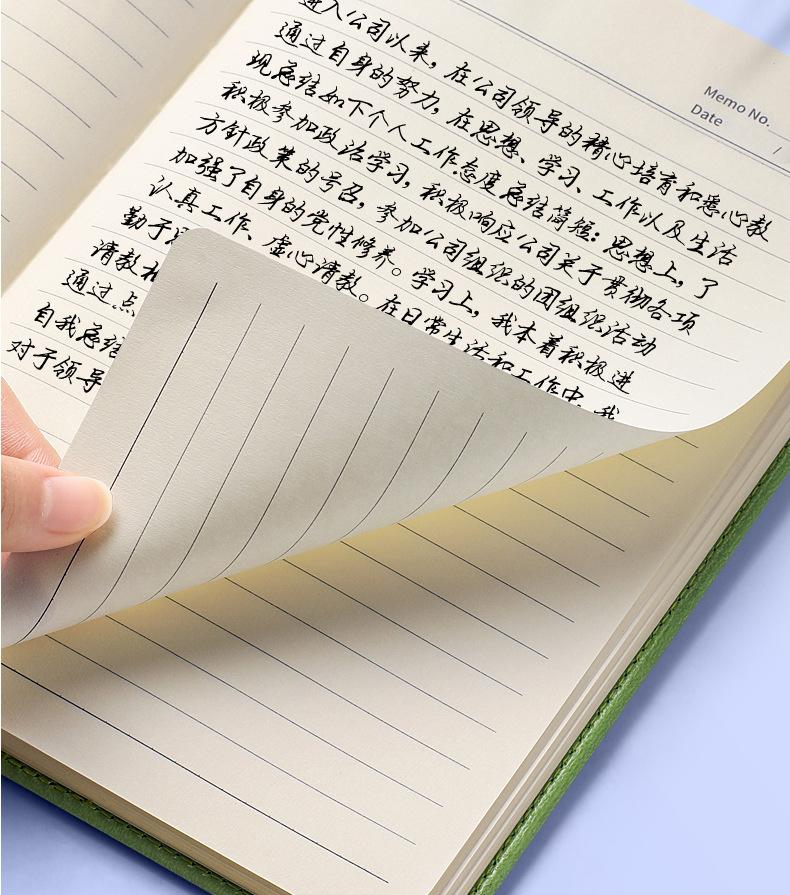 Memo No.
Date /
进入公司以来，在公司领导的精心培育和悉心教
通过自身的努力，在思想、学习、工作以及生活
现总结如下个人工作态度总结简短：思想上，了
积极参加政治学习，积极响应公司关于贯彻各项
方针政策的号召，参加公司组织的团组织活动
加强了自身的党性修养。学习上，我本着积极进
认真工作、虚心请教。在日常生活和工作中，我
勤于
请教
通过点
自我总结
对于领导